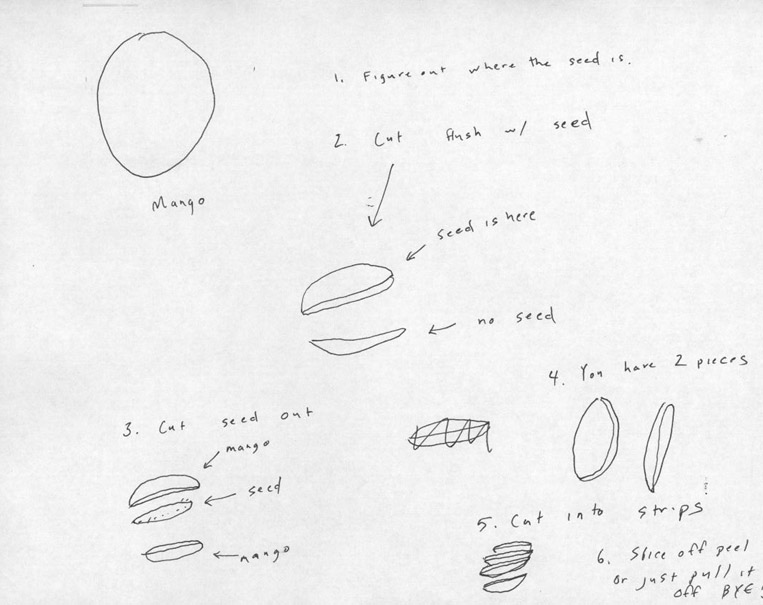 Mango
1. Figure out where the seed is.
2. Cut flush w/ seed
seed is here
no seed
3. Cut seed out
mango
seed
mango
4. You have 2 pieces
5. Cut into strips
6. Slice off peel
or just pull it
off BYE!